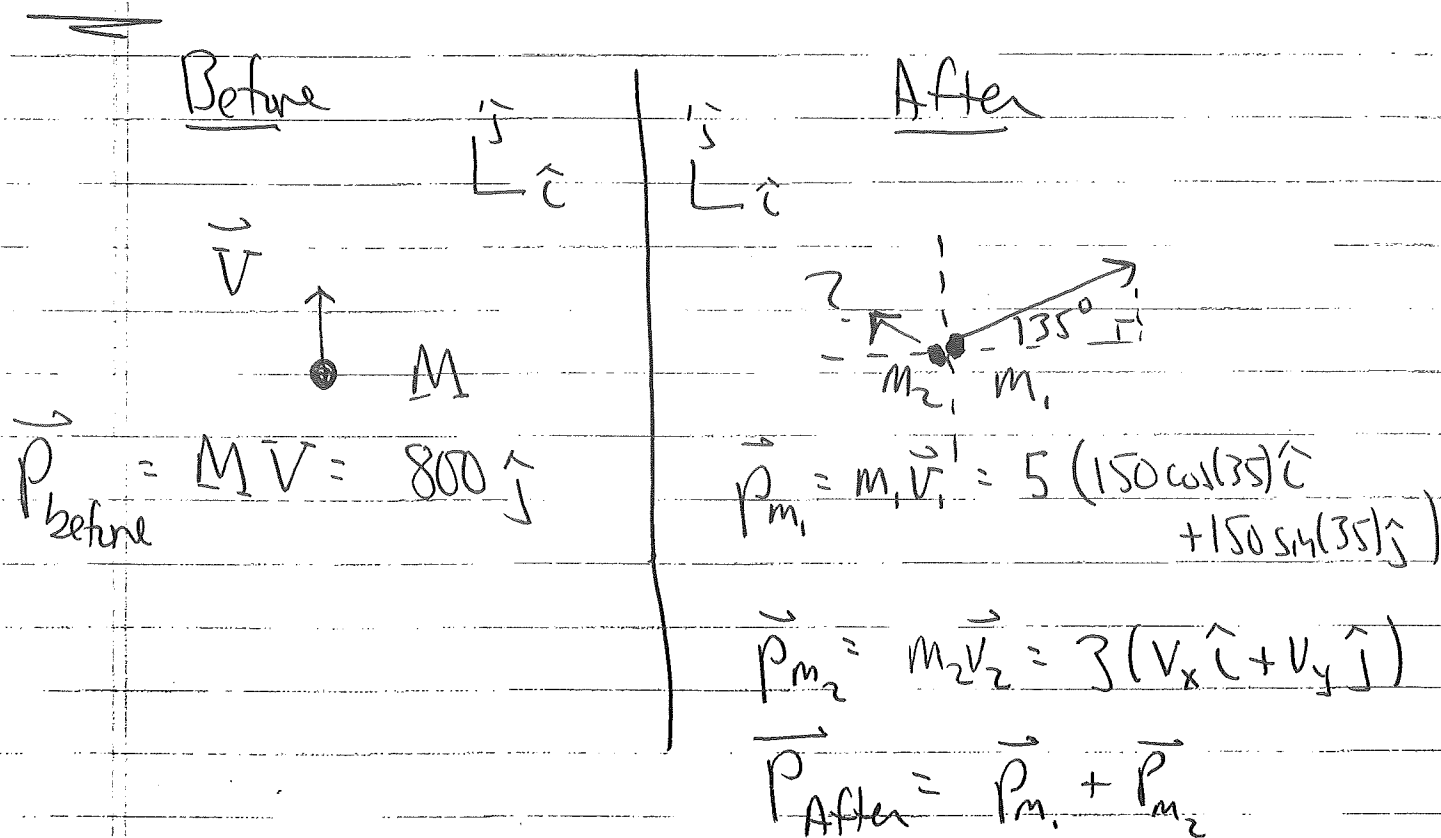 Before
ĵ
î
V⃗
M
P⃗before = M V⃗ = 800 ĵ
After
ĵ
î
?
35°
m₂ m₁
P⃗m₁ = m₁V⃗₁ = 5 (150 cos(35) î
+ 150 sin(35) ĵ)
P⃗m₂ = m₂V⃗₂ = 3 (Vx î + Vy ĵ)
P⃗After = P⃗m₁ + P⃗m₂